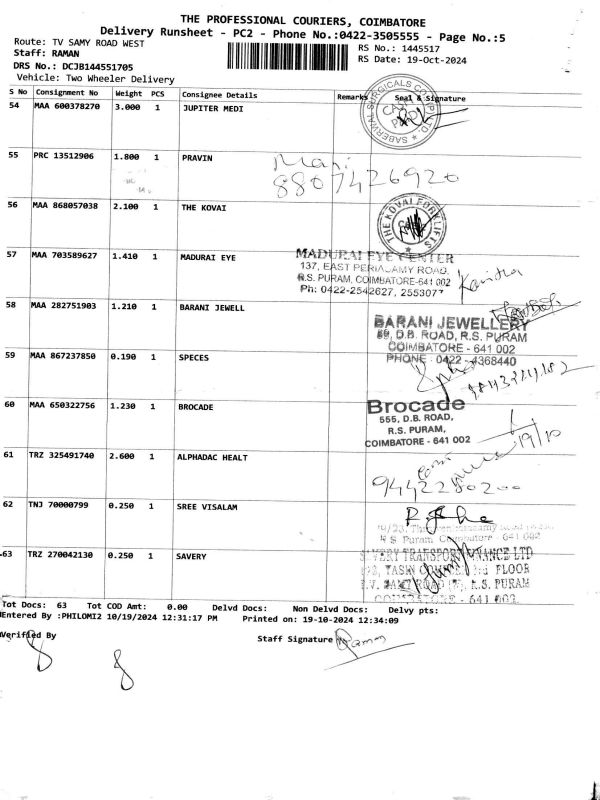 THE PROFESSIONAL COURIERS, COIMBATORE
Delivery Runsheet - PC2 - Phone No.:0422-3505555 - Page No.:5
Route: TV SAMY ROAD WEST
Staff: RAMAN
DRS No.: DCJB144551705
Vehicle: Two Wheeler Delivery
RS No.: 1445517
RS Date: 19-Oct-2024
S No Consignment No Weight PCS Consignee Details Remarks Seal & Signature
54 MAA 600378270 3.000 1 JUPITER MEDI
SABERWAL SURGICALS CO (P) LTD
55 PRC 13512906 1.800 1 PRAVIN
Mani
8807426920
56 MAA 868057038 2.100 1 THE KOVAI
THE KOVAI FORKLIFTS
57 MAA 703589627 1.410 1 MADURAI EYE
MADURAI EYE CENTER
137, EAST PERIASAMY ROAD,
R.S. PURAM, COIMBATORE-641 002
Ph: 0422-2542627, 2553077
Kavitha
58 MAA 282751903 1.210 1 BARANI JEWELL
BARANI JEWELLERY
D.B. ROAD, R.S. PURAM
COIMBATORE - 641 002
PHONE : 0422 - 4368440
59 MAA 867237850 0.190 1 SPECES
60 MAA 650322756 1.230 1 BROCADE
Brocade
555, D.B. ROAD,
R.S. PURAM,
COIMBATORE - 641 002
19/10
61 TRZ 325491740 2.600 1 ALPHADAC HEALT
9442280200
62 TNJ 70000799 0.250 1 SREE VISALAM
R.S. Puram Coimbatore - 641 002
63 TRZ 270042130 0.250 1 SAVERY
SAVERY TRANSPORT FINANCE LTD
FLOOR
R.S. PURAM
COIMBATORE - 641 002
Tot Docs: 63 Tot COD Amt: 0.00 Delvd Docs: Non Delvd Docs: Delvy pts:
Entered By :PHILOMI2 10/19/2024 12:31:17 PM Printed on: 19-10-2024 12:34:09
Verified By
Staff Signature Raman